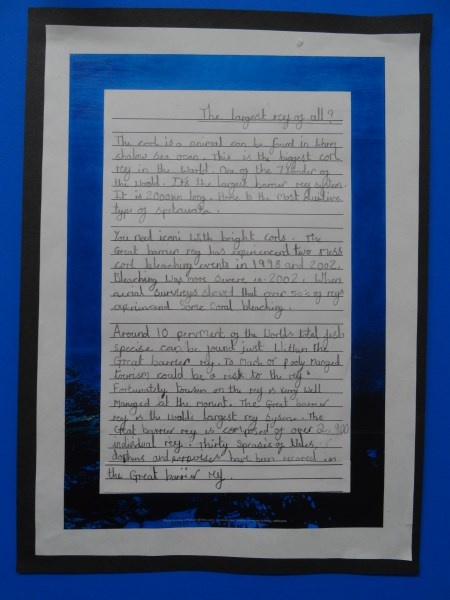 The largest rey of all?
The corl is a animal can be found in
shalow sea ocan. This is the biggest corl
rey in the World. One of the 7 of
the World. It's the largest barrier rey system.
It is 2000km long. Home to the most
type of
You need iconi With bright corls. The
Great barrier rey has expierenced two mass
corl bleaching events in 1998 and 2002.
Bleaching Was more severe in 2002. When
aerial surveys showed that over 50% of reys
some coral bleaching.
Around 10 of the World's total fish
specise can be found just Within the
Great barrier rey. To much of
tourism could be a risk to the rey.
Fortunately tourism on the rey is very Well
Manged at the mount. The Great barrier
rey is the Worlds largest rey system. The
Great barrier rey is composed of over 2,900
individual rey. Thirty of
dolphins and have been recored in
the Great barrier rey.